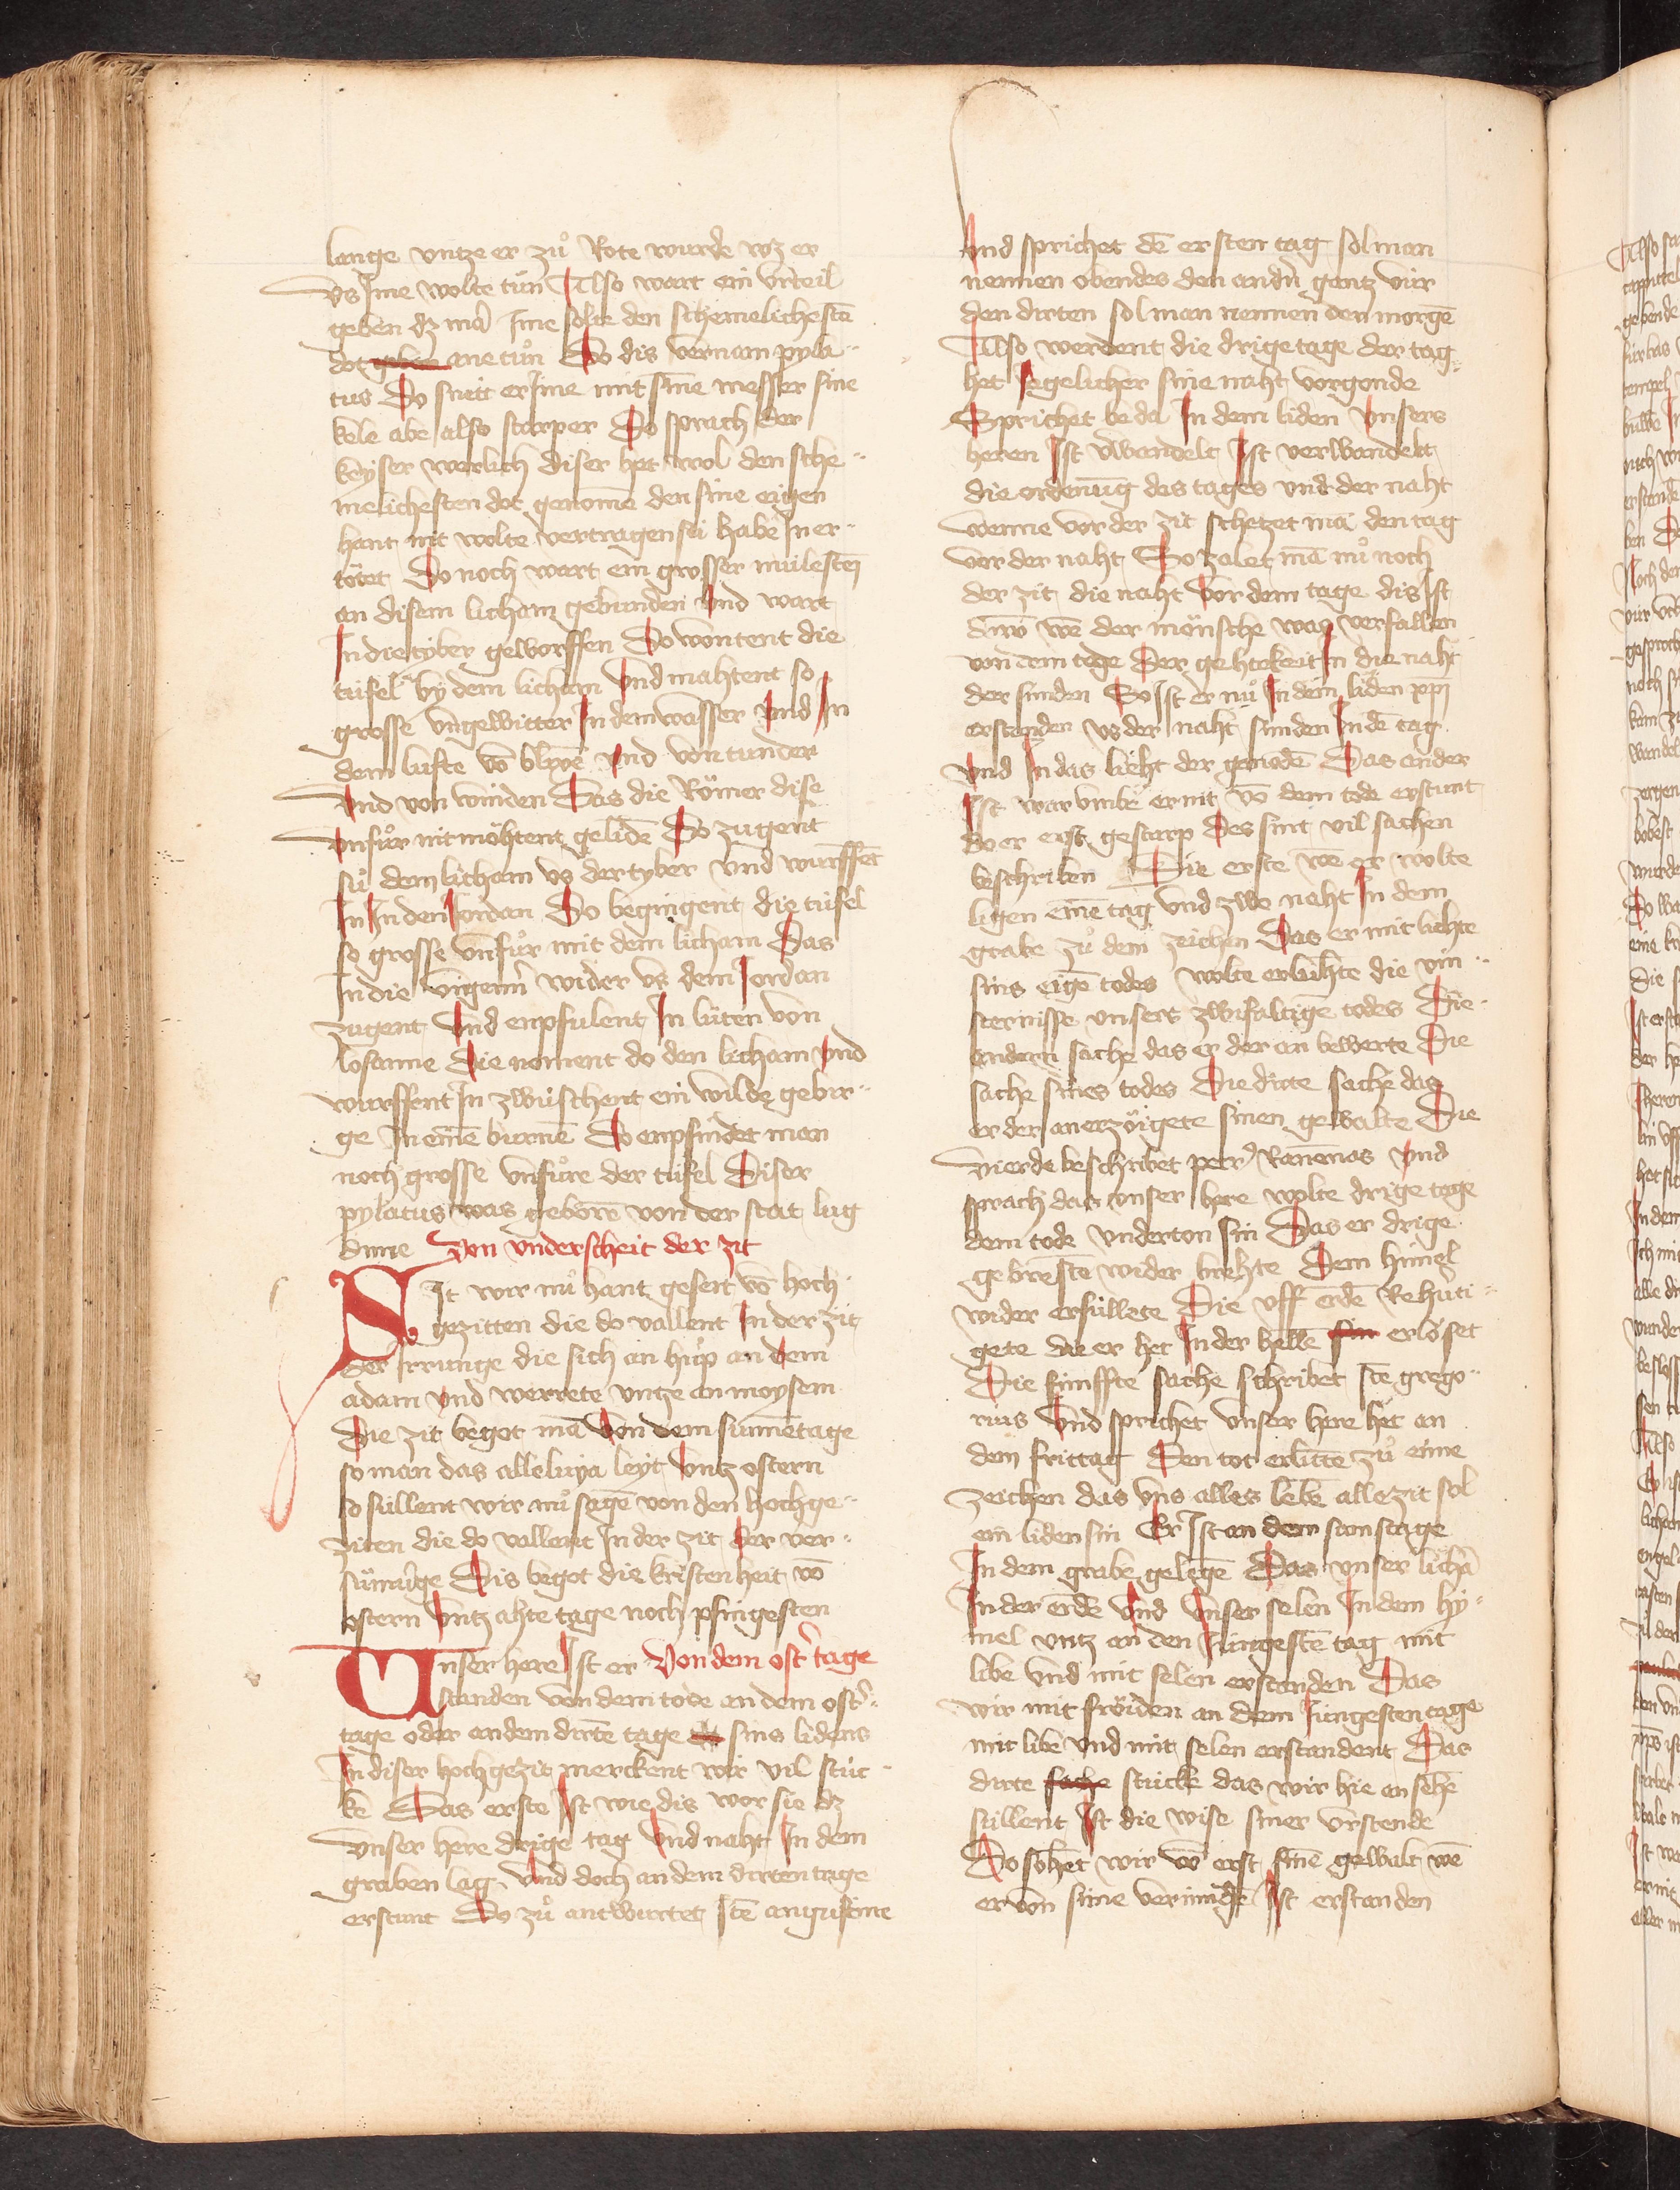 lange vntze er zuͦ Rote wurde wz er
vs Jme wolte tuͦn Also wart ein vrteil
geben dz mā Jme solte den schemelichestē
dot ane tuͦn Do dis vernam pyla-
tus Do sneit er Jme mit sime messer sine
kele abe also starp er Do sprach der
keyser werlich diser het wol den sche-
melichesten dot genomē den sine eigen
hant nit wolte vertragen sü habe Jn er-
tötet Do noch wart ein grosser mülestei
an disem licham gebunden Vnd wart
Jn die tyber geworffen Do wontent die
tüfel by dem licham Vnd mahtent so
grosse vngewitter Jn dem wasser Vnd Jn
dem lufte vō blixē Vnd von tunder
Vnd von winden Das die Römer dise
Vnfuͦr nit möhtent geliden Do zugent
sü dem licham vs der tyber Vnd wurffēt
Jn Jn den Jordan Do begingent die tüfel
so grosse vnfuͦr mit dem licham Das
Jn die vmgenn wider vs dem Jordan
zugent Vnd enpfulent Jn lüten von
losanne Die noment do den licham Vnd
wurffent Jn zwüschent ein wilde gebir-
ge Jn einē burnē Do enpfindet man
noch grosse vnfuͦre der tüfel Diser
pylatus was geborē von der stat lug
dune Von vnderscheit der zit
Sit wir nuͦ hant geseit vō hoch-
gezitten die do vallent Jn der zit
der Jrrunge die sich an huͦp an dem
adam Vnd werrete vntze an moysem
Die zit begot mā Von dem sunnētage
so man das alleluya leyt Vntz ostern
so süllent wir nuͦ sagē von den hochge-
ziten die do vallent Jn der zit der ver-
suͦnunge Dis begot die kristenheit vō
ostern Vntz ahte tage noch pfingesten
Vnser here Jst er Von dem ost' tage
standen von dem tode an dem ost'-
tage oder an dem dirtē tage sins lidens
Jn diser hochgezit merckent wir vil stüc-
ke Das erste Jst wie dis wor sie dz
Vnser here drige tag Vnd naht Jn dem
graben lag Vnd doch an dem dirten tage
erstunt Do zuͦ antwurtet stē augustine
Vnd sprichet dē ersten tag sol man
nemmen obendes den andn gantz vür
den dirten sol man nennen den morgē
Also werdent die drige tage der tag
het Jegelicher sine naht vorgonde
Sprichet beda Jn dem liden Vnsers
heren Jst v'wandelt Jst verwandelt
die ordenūg des tages vnd der naht
wenne vor der zit schetzet mā den tag
vor der naht So zalet mā nuͦ noch
der zit die naht Vor dem tage dis Jst
dwō wē der mönsche waz verfallen
von dem tage Der gehtekeit Jn die naht
der sünden So Jst er nuͦ Jn dem liden xp̄i
erstanden vs der naht sünden Jn dē tag
Vnd Jn das lieht der genodē Das ander
Jst warvmbe er nit vō dem tode erstunt
do er erst gestarp Des sint vil sachen
beschriben Die erste wē er wolte
ligen einē tag Vnd zwo naht Jn dem
grabe zuͦ dem zeichen Das er mit liehte
sins eigē todes wolte erlühte die vin-
sternisse vnsers zwifaltigē todes Die
andern sache das er der an bewerte Die
sache sines todes Die dirte sache das
er der an erzöigete sinen gewalte Die
Vierde beschribet petr' Ranēnas Vnd
sprach das vnser here wolte drige tage
dem tode vnderton sin Das er drige
gebrestē wider brehte Dem himel
wider erfüllete Die vff erdē Rehuti-
gete die er het Jn der hellē erlöset
Die fünffte sache schribet stē grego-
rius Vnd sprichet Vnser here het an
dem frittag Den tot erlittē zuͦ eime
zeichen das vns alles lebē allezit sol
ein liden sin Er Jst an dem samstage
Jn dem grabe gelegē Das vnser lichā
Jn der erdē Vnd Vnser selen Jn dem hy-
mel vntz an den Jüngestē tag mit
libe vnd mit selen erstanden Das
wir mit fröiden an dem Jüngesten tage
mit libe vnd mit selen erstandent Das
dirte stücke das wir hie an sehē
süllent Jst die wise siner vrstende
Do sehēt wir vō erst sinē gewalt wē
er von sime vermüdē Jst erstanden